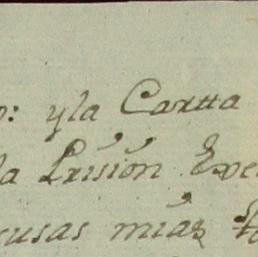 yla Cartta
la Prision Exe
cusas mias